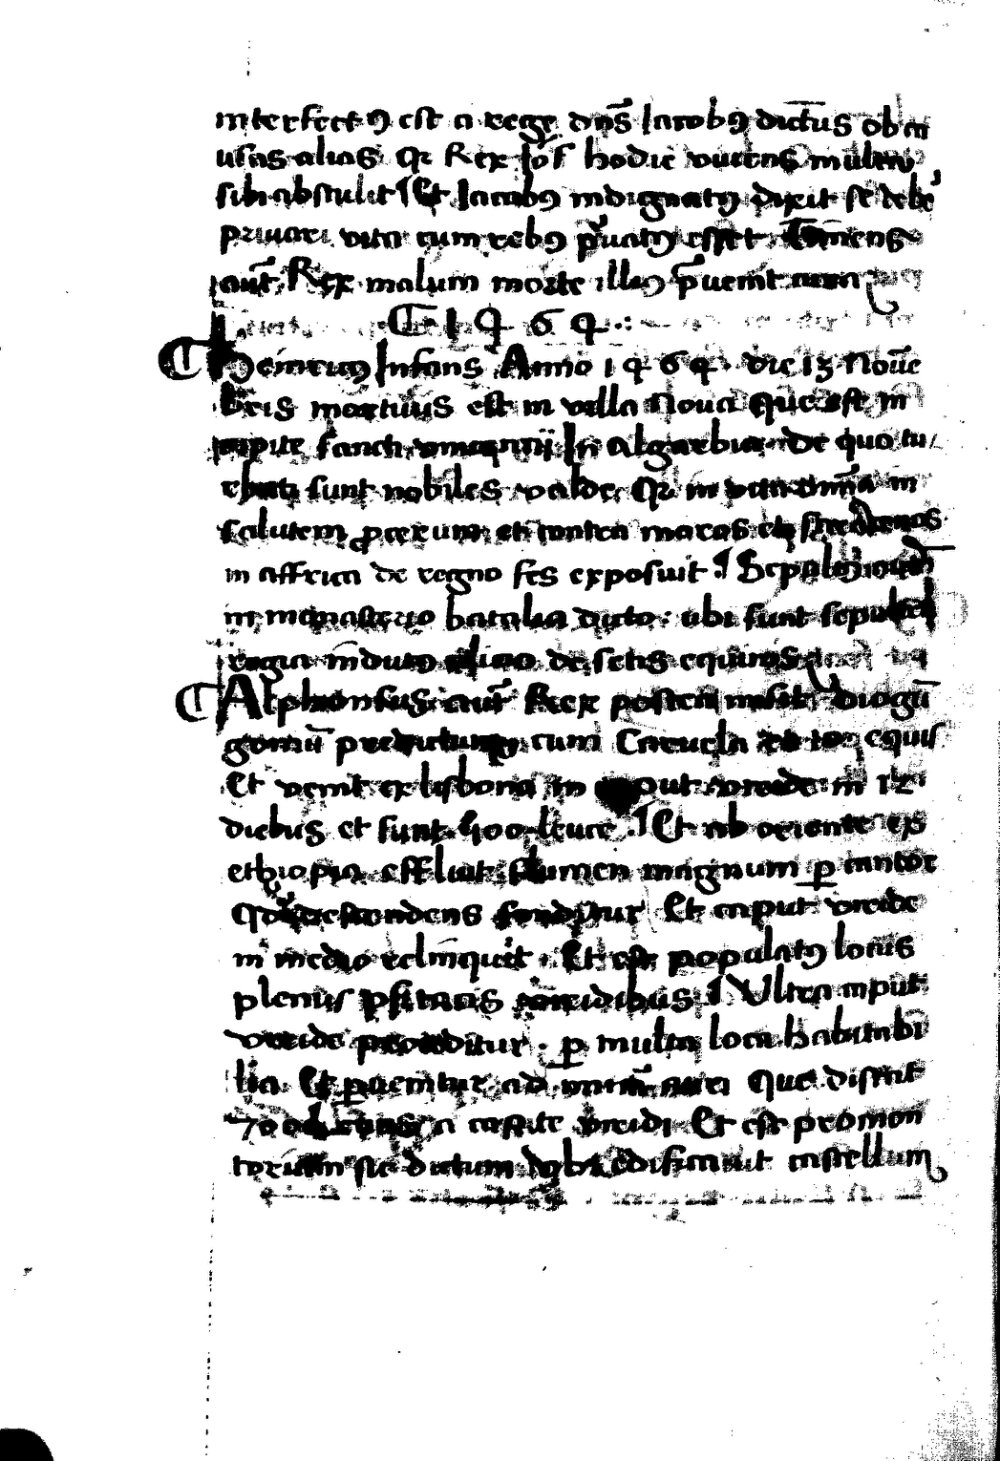 interfectꝯ est a rege dn̄s Jacobꝯ dictus ob ca
usas alias qr Rex Jo͞s hodie viuens multa
sibi abstulit Et Jacobꝯ indignatꝯ dixit se deb̄e
priuari vita cum rebꝯ pͥuatꝯ esset timens
aut̄ Rex malum morte illiꝯ p̄uenit
1464
Heinricꝯ Infans Anno 1464 die 13 Nouē
bris mortuus est in villa Noua que est in
capite sancti vincentij In algarbia de quo tu
rbati sunt nobiles valde qr in vita omnia in
salutem ꝓcerum et contra maros et
in affrica de regno fes exposuit Sepultꝯ
in monasterio batalia dicto ubi sunt sepulti
reges indutꝯ de setis equinis
Alphonsus aut̄ Rex postea misit diogū
gomiū predictum cum Carauela et 10 equis
Et venit ex lisbona in caput viride in 12
diebus et sunt 500 leuce Et ab oriente ex
ethiopia effluit flumen magnum ꝑ cantor
descendens funditur Et caput viride
in medio relinquit Et est populatꝯ locus
plenus psitacis viridibus Ultra caput
viride proceditur ꝑ multa loca habitabi
lia Et ꝑuenitur ad minā auri que distat
700 a capite viridi Et est promon
torium sic dictum vbi edificauit castellum